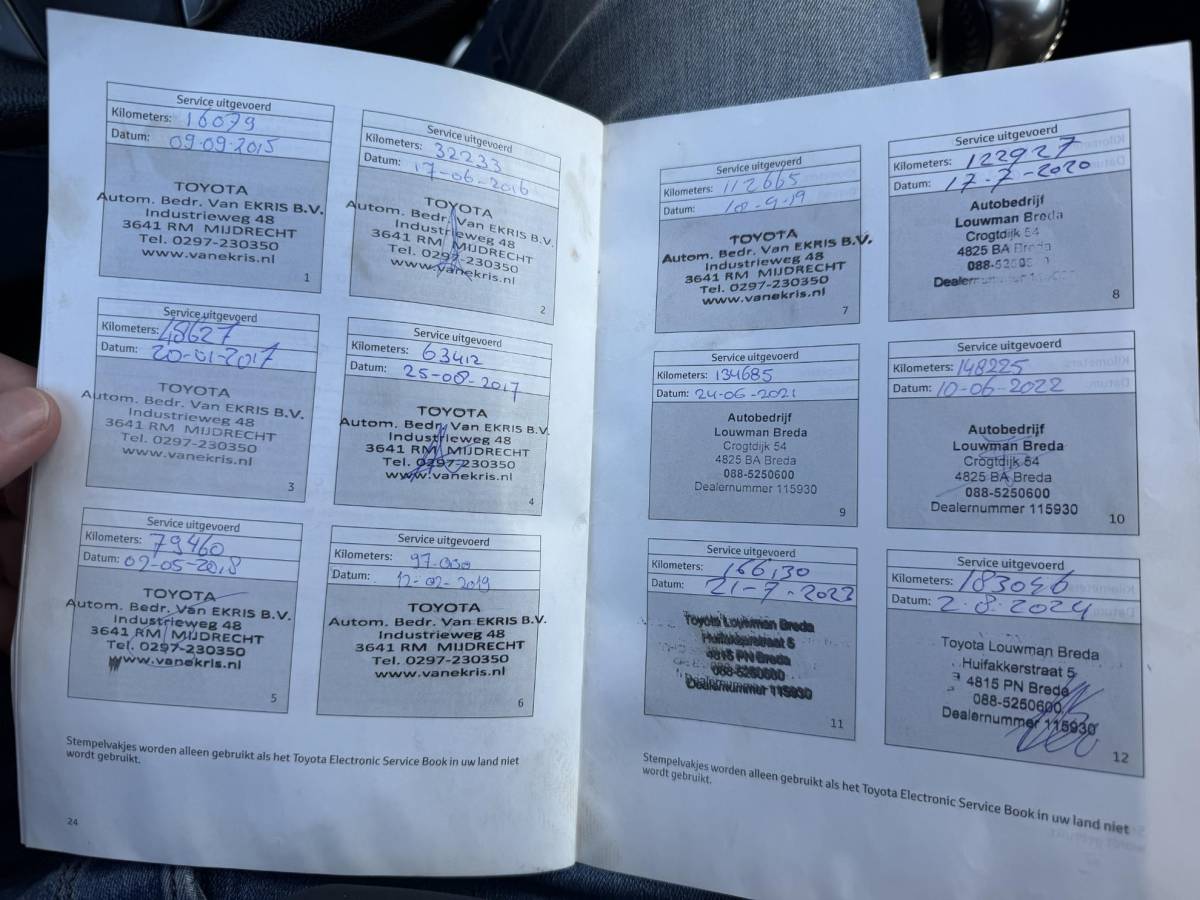 Service uitgevoerd
Kilometers: 16079
Datum: 09-09-2015
TOYOTA
Autom. Bedr. Van EKRIS B.V.
Industrieweg 48
3641 RM MIJDRECHT
Tel. 0297-230350
www.vanekris.nl
1
Service uitgevoerd
Kilometers: 32233
Datum: 17-06-2016
TOYOTA
Autom. Bedr. Van EKRIS B.V.
Industrieweg 48
3641 RM MIJDRECHT
Tel. 0297-230350
www.vanekris.nl
2
Service uitgevoerd
Kilometers: 48627
Datum: 20-01-2017
TOYOTA
Autom. Bedr. Van EKRIS B.V.
Industrieweg 48
3641 RM MIJDRECHT
Tel. 0297-230350
www.vanekris.nl
3
Service uitgevoerd
Kilometers: 63412
Datum: 25-08-2017
TOYOTA
Autom. Bedr. Van EKRIS B.V.
Industrieweg 48
3641 RM MIJDRECHT
Tel. 0297-230350
www.vanekris.nl
4
Service uitgevoerd
Kilometers: 79460
Datum: 02-05-2018
TOYOTA
Autom. Bedr. Van EKRIS B.V.
Industrieweg 48
3641 RM MIJDRECHT
Tel. 0297-230350
www.vanekris.nl
5
Service uitgevoerd
Kilometers: 97.030
Datum: 12-02-2019
TOYOTA
Autom. Bedr. Van EKRIS B.V.
Industrieweg 48
3641 RM MIJDRECHT
Tel. 0297-230350
www.vanekris.nl
6
Stempelvakjes worden alleen gebruikt als het Toyota Electronic Service Book in uw land niet
wordt gebruikt.
24
Service uitgevoerd
Kilometers: 112665
Datum: 18-9-19
TOYOTA
Autom. Bedr. Van EKRIS B.V.
Industrieweg 48
3641 RM MIJDRECHT
Tel. 0297-230350
www.vanekris.nl
7
Service uitgevoerd
Kilometers: 122927
Datum: 17-7-2020
Autobedrijf
Louwman Breda
Crogtdijk 54
4825 BA Breda
8
Service uitgevoerd
Kilometers: 134685
Datum: 24-06-2021
Autobedrijf
Louwman Breda
Crogtdijk 54
4825 BA Breda
088-5250600
Dealernummer 115930
9
Service uitgevoerd
Kilometers: 148225
Datum: 10-06-2022
Autobedrijf
Louwman Breda
Crogtdijk 54
4825 BA Breda
088-5250600
Dealernummer 115930
10
Service uitgevoerd
Kilometers: 166,130
Datum: 21-7-2023
Toyota Louwman Breda
Huifakkerstraat 5
4815 PN Breda
088-5250600
Dealernummer 115930
11
Service uitgevoerd
Kilometers: 183046
Datum: 2.8.2024
Toyota Louwman Breda
Huifakkerstraat 5
4815 PN Breda
088-5250600
Dealernummer 115930
12
Stempelvakjes worden alleen gebruikt als het Toyota Electronic Service Book in uw land niet
wordt gebruikt.